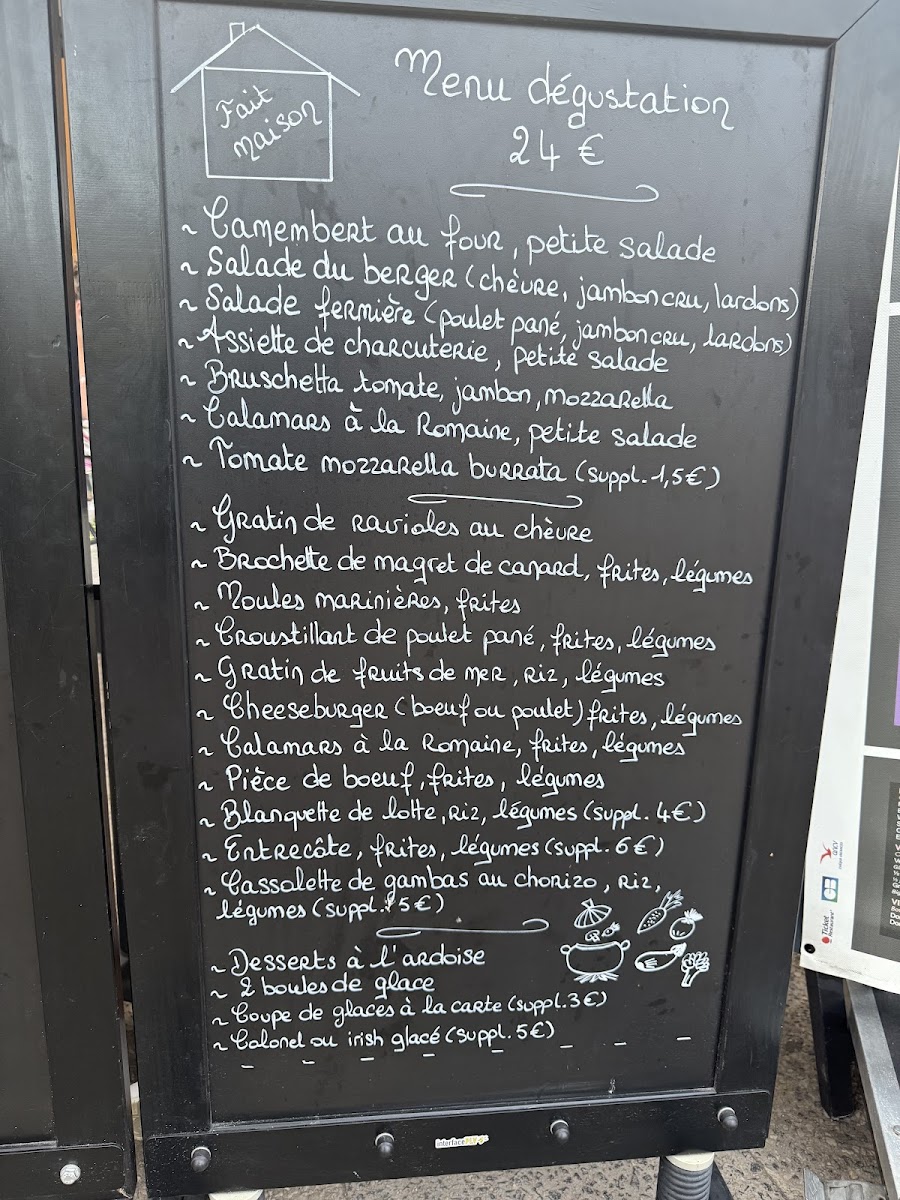 Fait
maison
Menu dégustation
24 €
~ Camembert au four, petite salade
~ Salade du berger (chèvre, jambon cru, lardons)
~ Salade fermière (poulet pané, jambon cru, lardons)
~ Assiette de charcuterie, petite salade
~ Bruschetta tomate, jambon, mozzarella
~ Calamars à la Romaine, petite salade
~ Tomate mozzarella burrata (suppl. 1,5€)
~ Gratin de ravioles au chèvre
~ Brochette de magret de canard, frites, légumes
~ Moules marinières, frites
~ Croustillant de poulet pané, frites, légumes
~ Gratin de fruits de mer, riz, légumes
~ Cheeseburger (boeuf ou poulet) frites, légumes
~ Calamars à la Romaine, frites, légumes
~ Pièce de boeuf, frites, légumes
~ Blanquette de lotte, riz, légumes (suppl. 4€)
~ Entrecôte, frites, légumes (suppl. 6€)
~ Cassolette de gambas au chorizo, riz,
légumes (suppl. 5€)
~ Desserts à l'ardoise
~ 2 boules de glace
~ Coupe de glaces à la carte (suppl. 3€)
~ Colonel ou irish glacé (suppl. 5€)
ancv
CB
Ticket
Restaurant